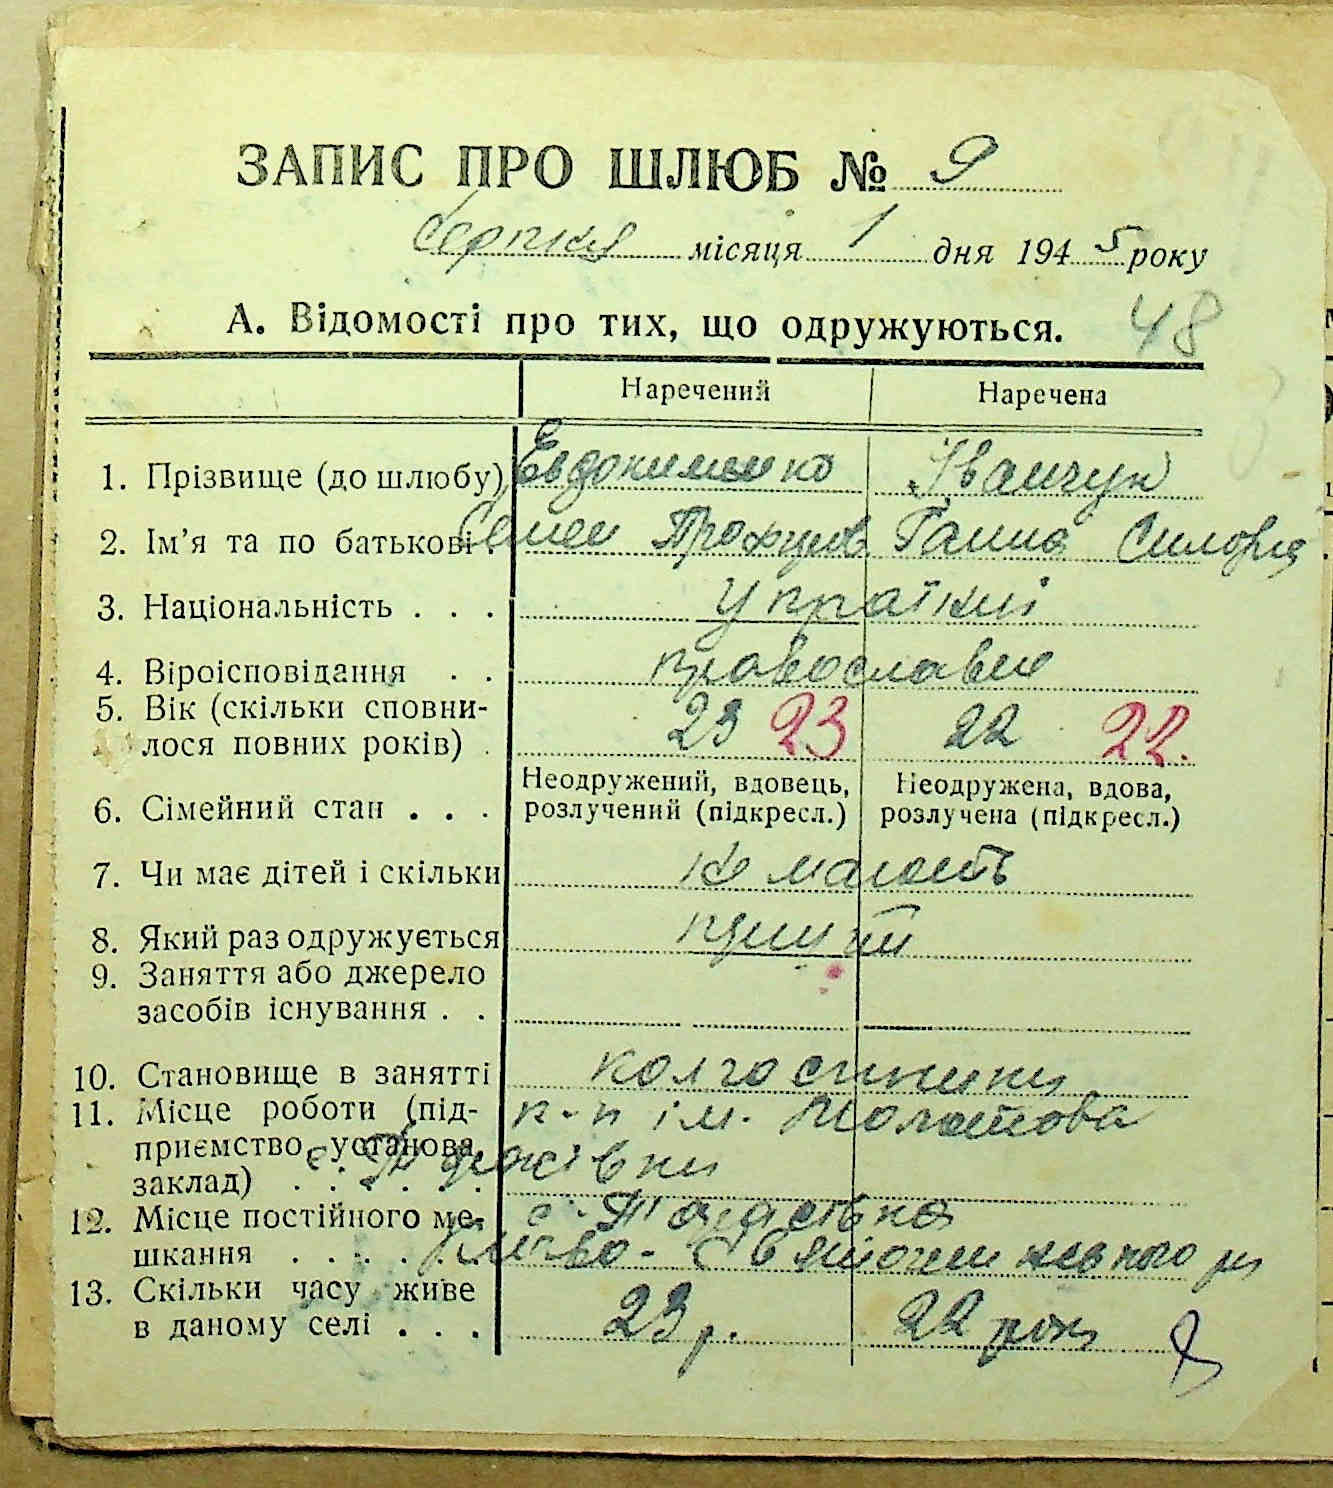 ЗАПИС ПРО ШЛЮБ № 9
Серпня місяця 1 дня 1945 року
А. Відомості про тих, що одружуються. 48
Наречений Наречена
1. Прізвище (до шлюбу) Евдокименко Іванчук
2. Ім’я та по батькові Семен Трохимов Ганна Силовна
3. Національність . . . Українці
4. Віроісповідання . . православне
5. Вік (скільки сповни-
лося повних років) . 23 23 22 22.
Неодружений, вдовець, Неодружена, вдова,
6. Сімейний стан . . . розлучений (підкресл.) розлучена (підкресл.)
7. Чи має дітей і скільки не мають
8. Який раз одружується
9. Заняття або джерело
засобів існування . .
10. Становище в занятті колгоспники
11. Місце роботи (під- к-п ім. Молотова
приємство, установа,
заклад) . . . . . .
12. Місце постійного ме- с.
шкання . . . . . . Києво-Святошинського р-н
13. Скільки часу живе
в даному селі . . . 23 р. 22 роки